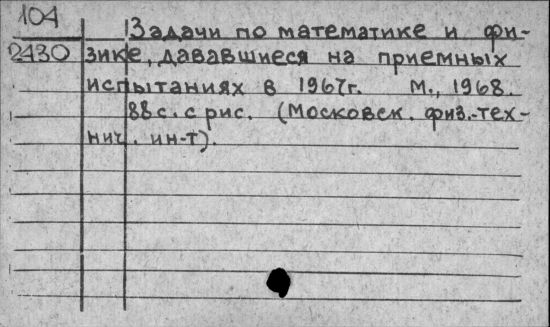 104
Задачи по математике и фи-
2430 зике, дававшиеся на приемных
испытаниях в 1967г. М., 1968.
88 с. с рис. (Московск. физ.-тех-
нич. ин-т).